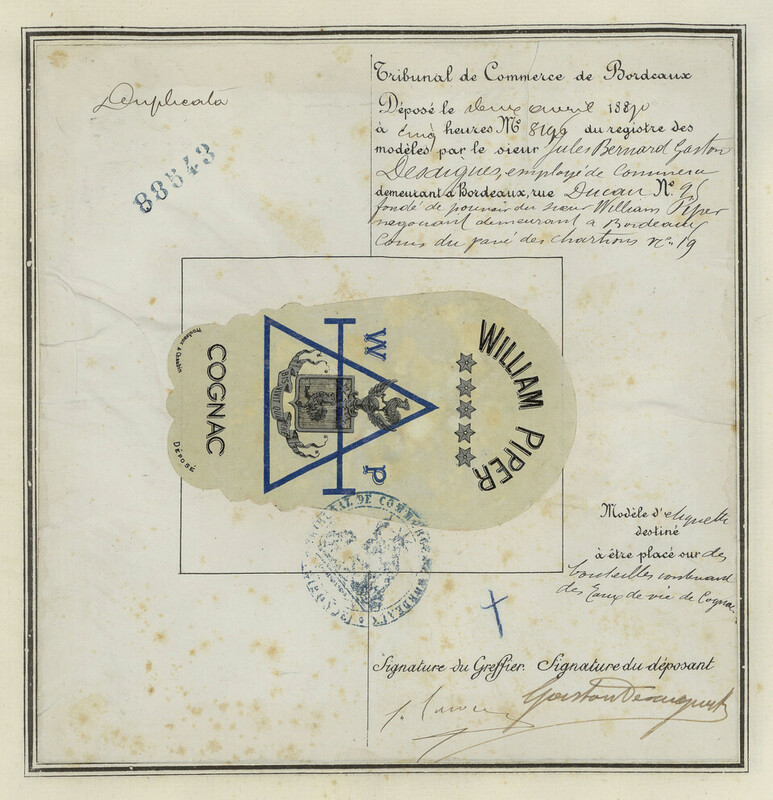 Duplicata
88543
Tribunal de Commerce de Bordeaux
Déposé le deux avril 1880
à cinq heures No du registre des
modèles par le sieur Jules Bernard Gaston
employé de Commerce
demeurant à Bordeaux, rue Ducau No
fondé de pouvoir du sieur William Piper
negociant demeurant a Bordeaux
Cours du pavé des chartrons no. 19
WILLIAM PIPER
W P
COGNAC
DÉPOSÉ
TRIBUNAL DE COMMERCE BORDEAUX
Modèle d'etiquette
destiné
à être placé sur des
bouteilles contenant
des Eaux de vie de Cognac
Signature du Greffier. Signature du déposant
Gaston